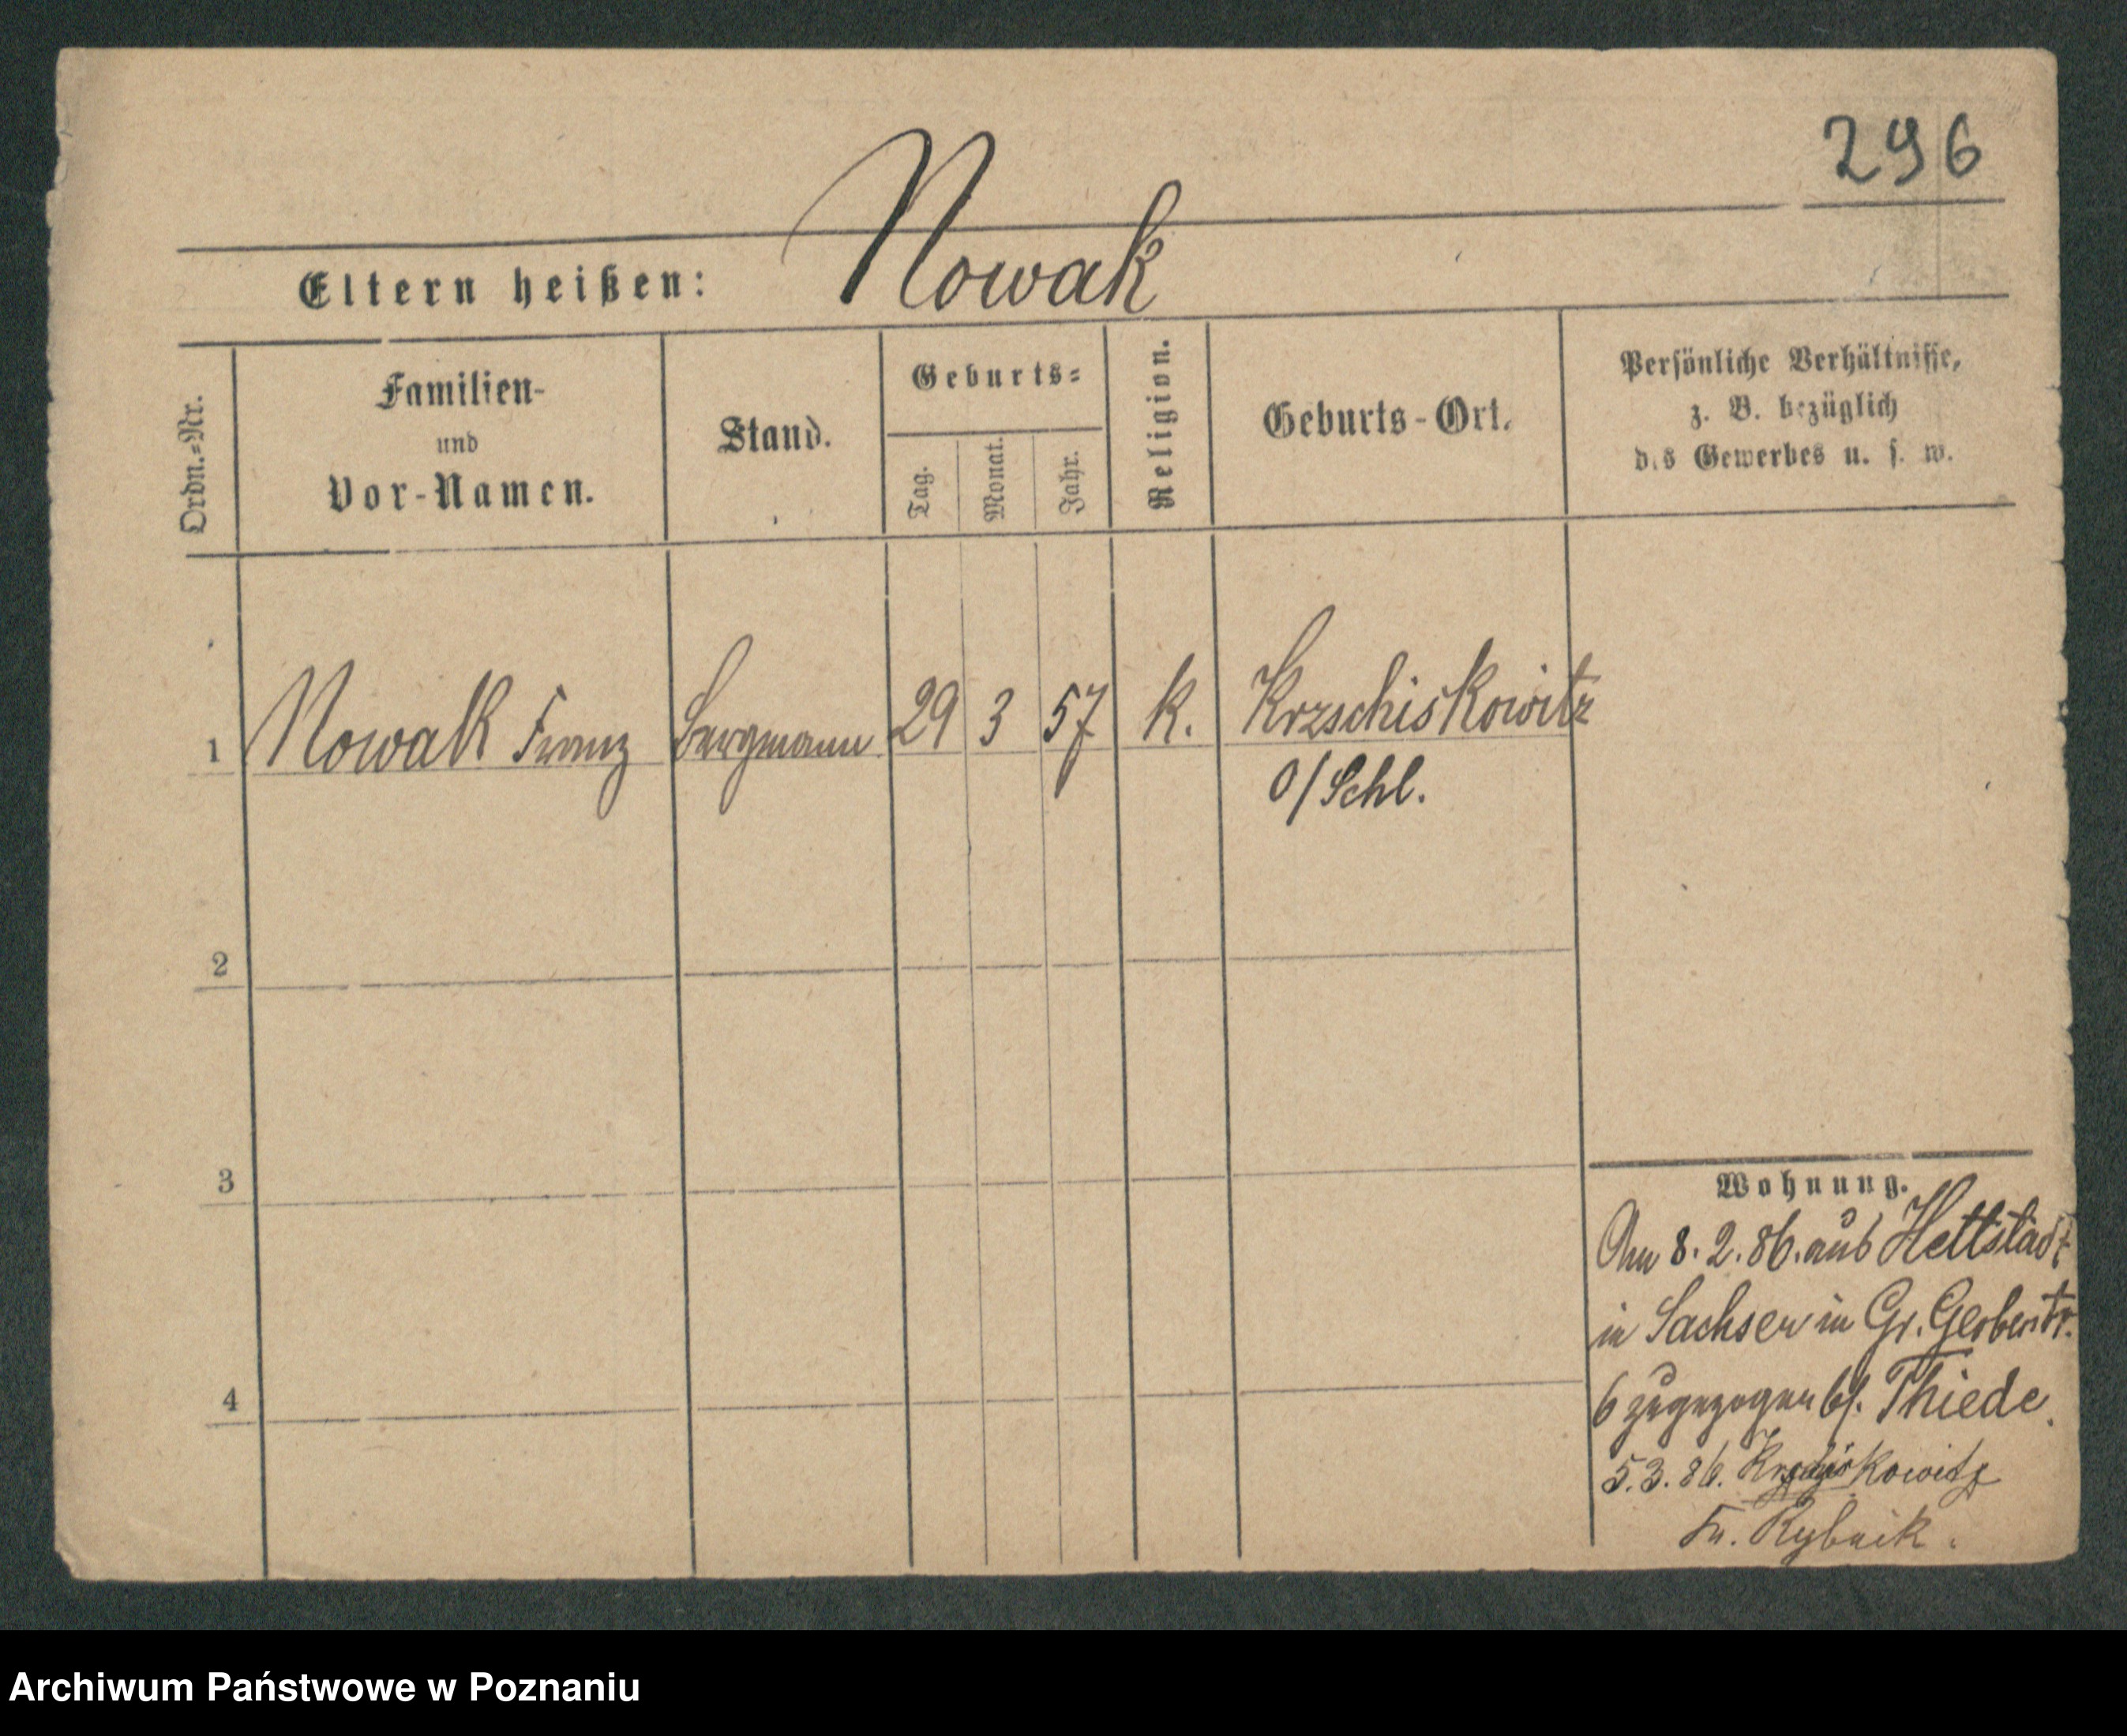 296
Eltern heißen: Nowak
Ordn.-Nr.
Familien-
und
Vor-Namen.
Stand.
Geburts-
Tag.
Monat.
Jahr.
Religion.
Geburts-Ort.
Persönliche Verhältnisse,
z. B. bezüglich
des Gewerbes u. s. w.
1 Nowak Franz Bergmann 29 3 57 k. Krzschiskowitz
O/Schl.
2
3
4
Wohnung.
Am 8.2.86. aus Hettstädt
in Sachsen in Gr. Gerberstr.
6 zugezogen bei Thiede.
5.3.86. Krzschiskowitz
Rybnik.
Archiwum Państwowe w Poznaniu